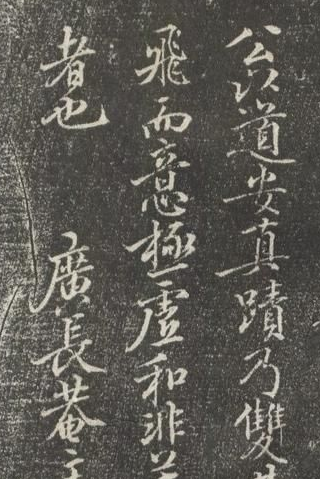 公以道安真蹟乃雙
飛而意極虛和非
者也　廣長菴主